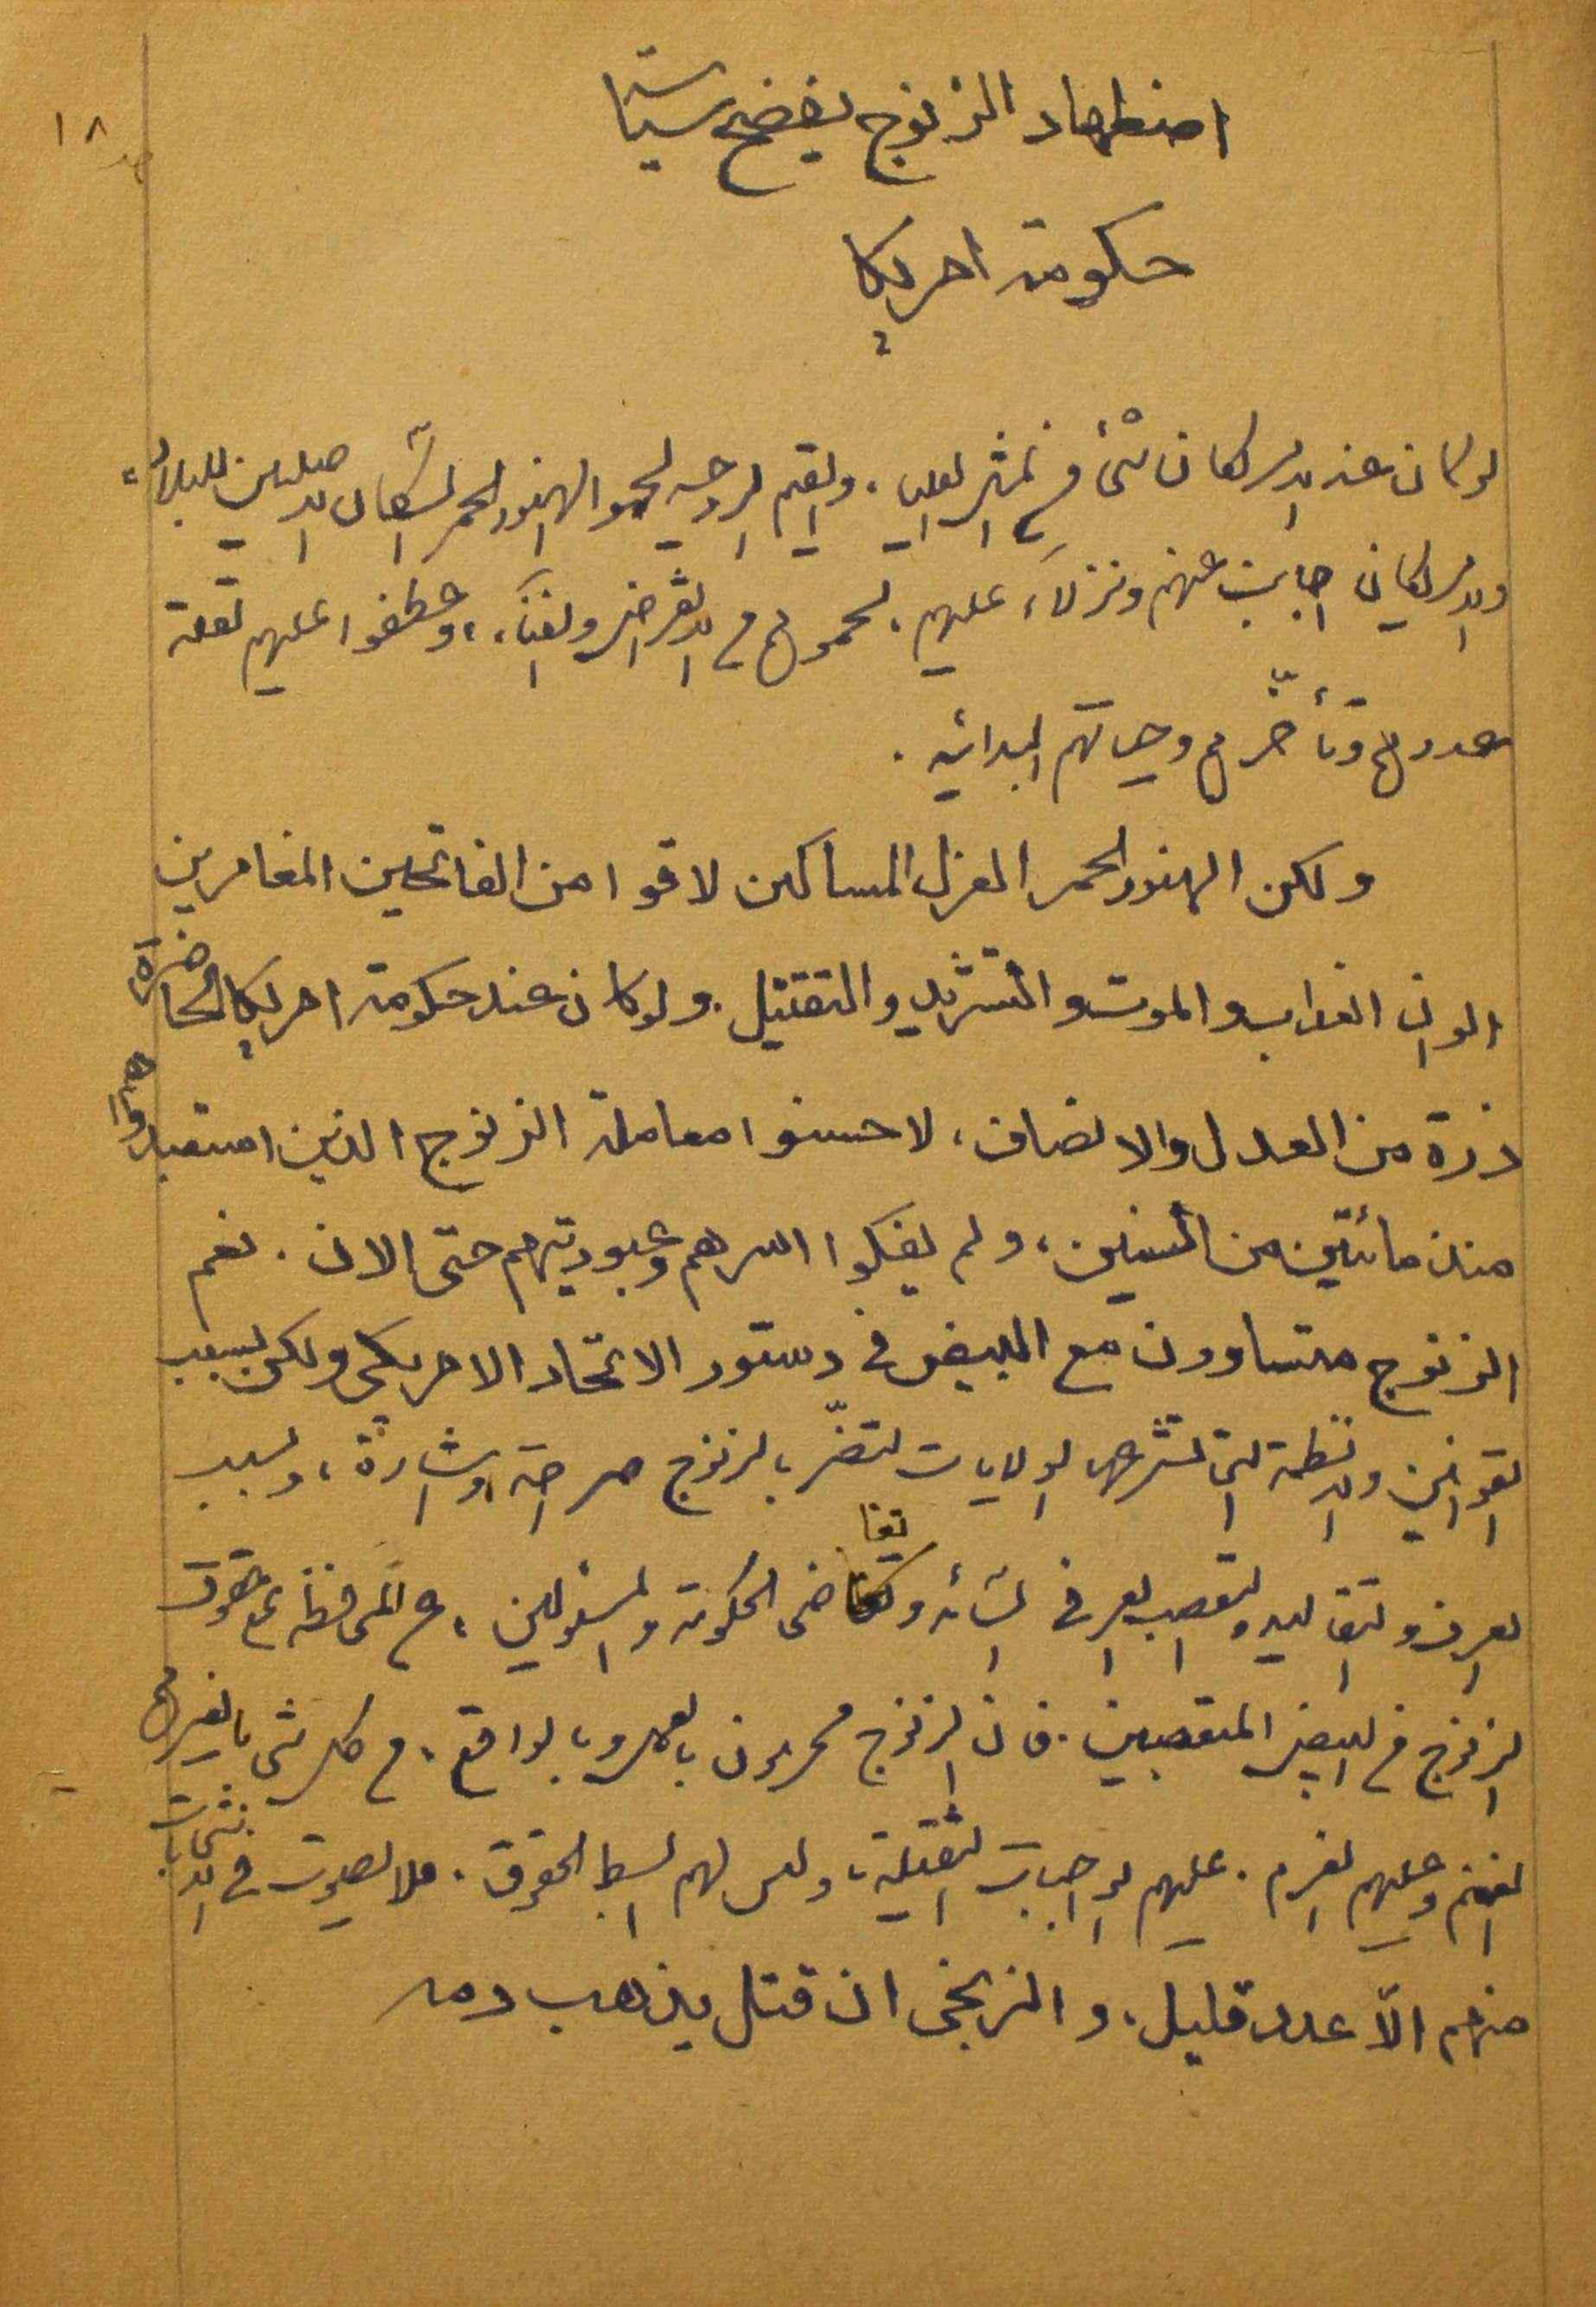 صـ ١٨
اضطهاد الزنوج يفضح سياسة
حكومة امريكا
لو كان عند الامريكان شئ من المثل العليا، والقيم الروحية لحموا الهنود الحمر السكان الاصليين للبلاد،
والامريكان اجانب عنهم ونزلاء عليهم، لحموهم من الانقراض والفناء، وعطفوا عليهم لقلة
عددهم وتأخّرهم وحياتهم البدائية.
ولكن الهنود الحمر العزل المساكين لاقوا من الفاتحين المغامرين
الوان العذاب والموت والتشريد والتقتيل. ولو كان عند حكومة امريكا الحاضرة
ذرة من العدل والانصاف، لاحسنوا معاملة الزنوج الذين استعبدوهم
منذ مائتين من السنين، ولم يفكوا اسرهم وعبوديتهم حتى الان. نعم
الزنوج متساوون مع البيض في دستور الاتحاد الامريكى ولكن بسبب
القوانين والانظمة التى تشرعها الولايات لتضرّ بالزنوج صراحة واشارة، وبسبب
العرف والتقاليد والتعصب العرفى السائد وتغاضى الحكومة والمسئولين، عن المحافظة على حقوق
الزنوج من البيض المتعصبين. فان الزنوج محرومون بالعمل وبالواقع، من كل شئ بالغير لهم
الغنم وعليهم الغرم. عليهم الواجبات الثقيلة، وليس لهم ابسط الحقوق. فلا يصوت في الانتخابات
منهم الاّ عدد قليل، والزنجى ان قتل يذهب دمه